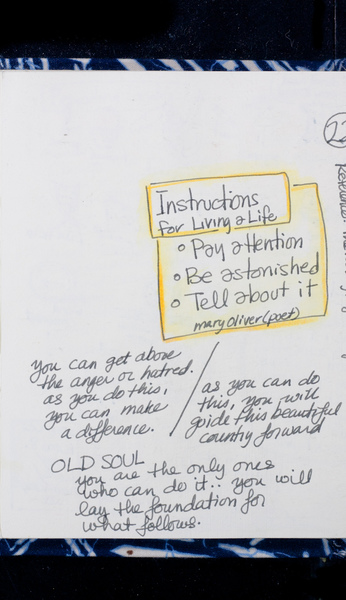 Instructions
for Living a Life
• Pay attention
• Be astonished
• Tell about it
mary Oliver (poet)
you can get above
the anger or hatred.
as you do this,
you can make
a difference.
as you can do
this, you will
guide this beautiful
country forward
OLD SOUL
you are the only ones
who can do it.. you will
lay the foundation for
what follows.